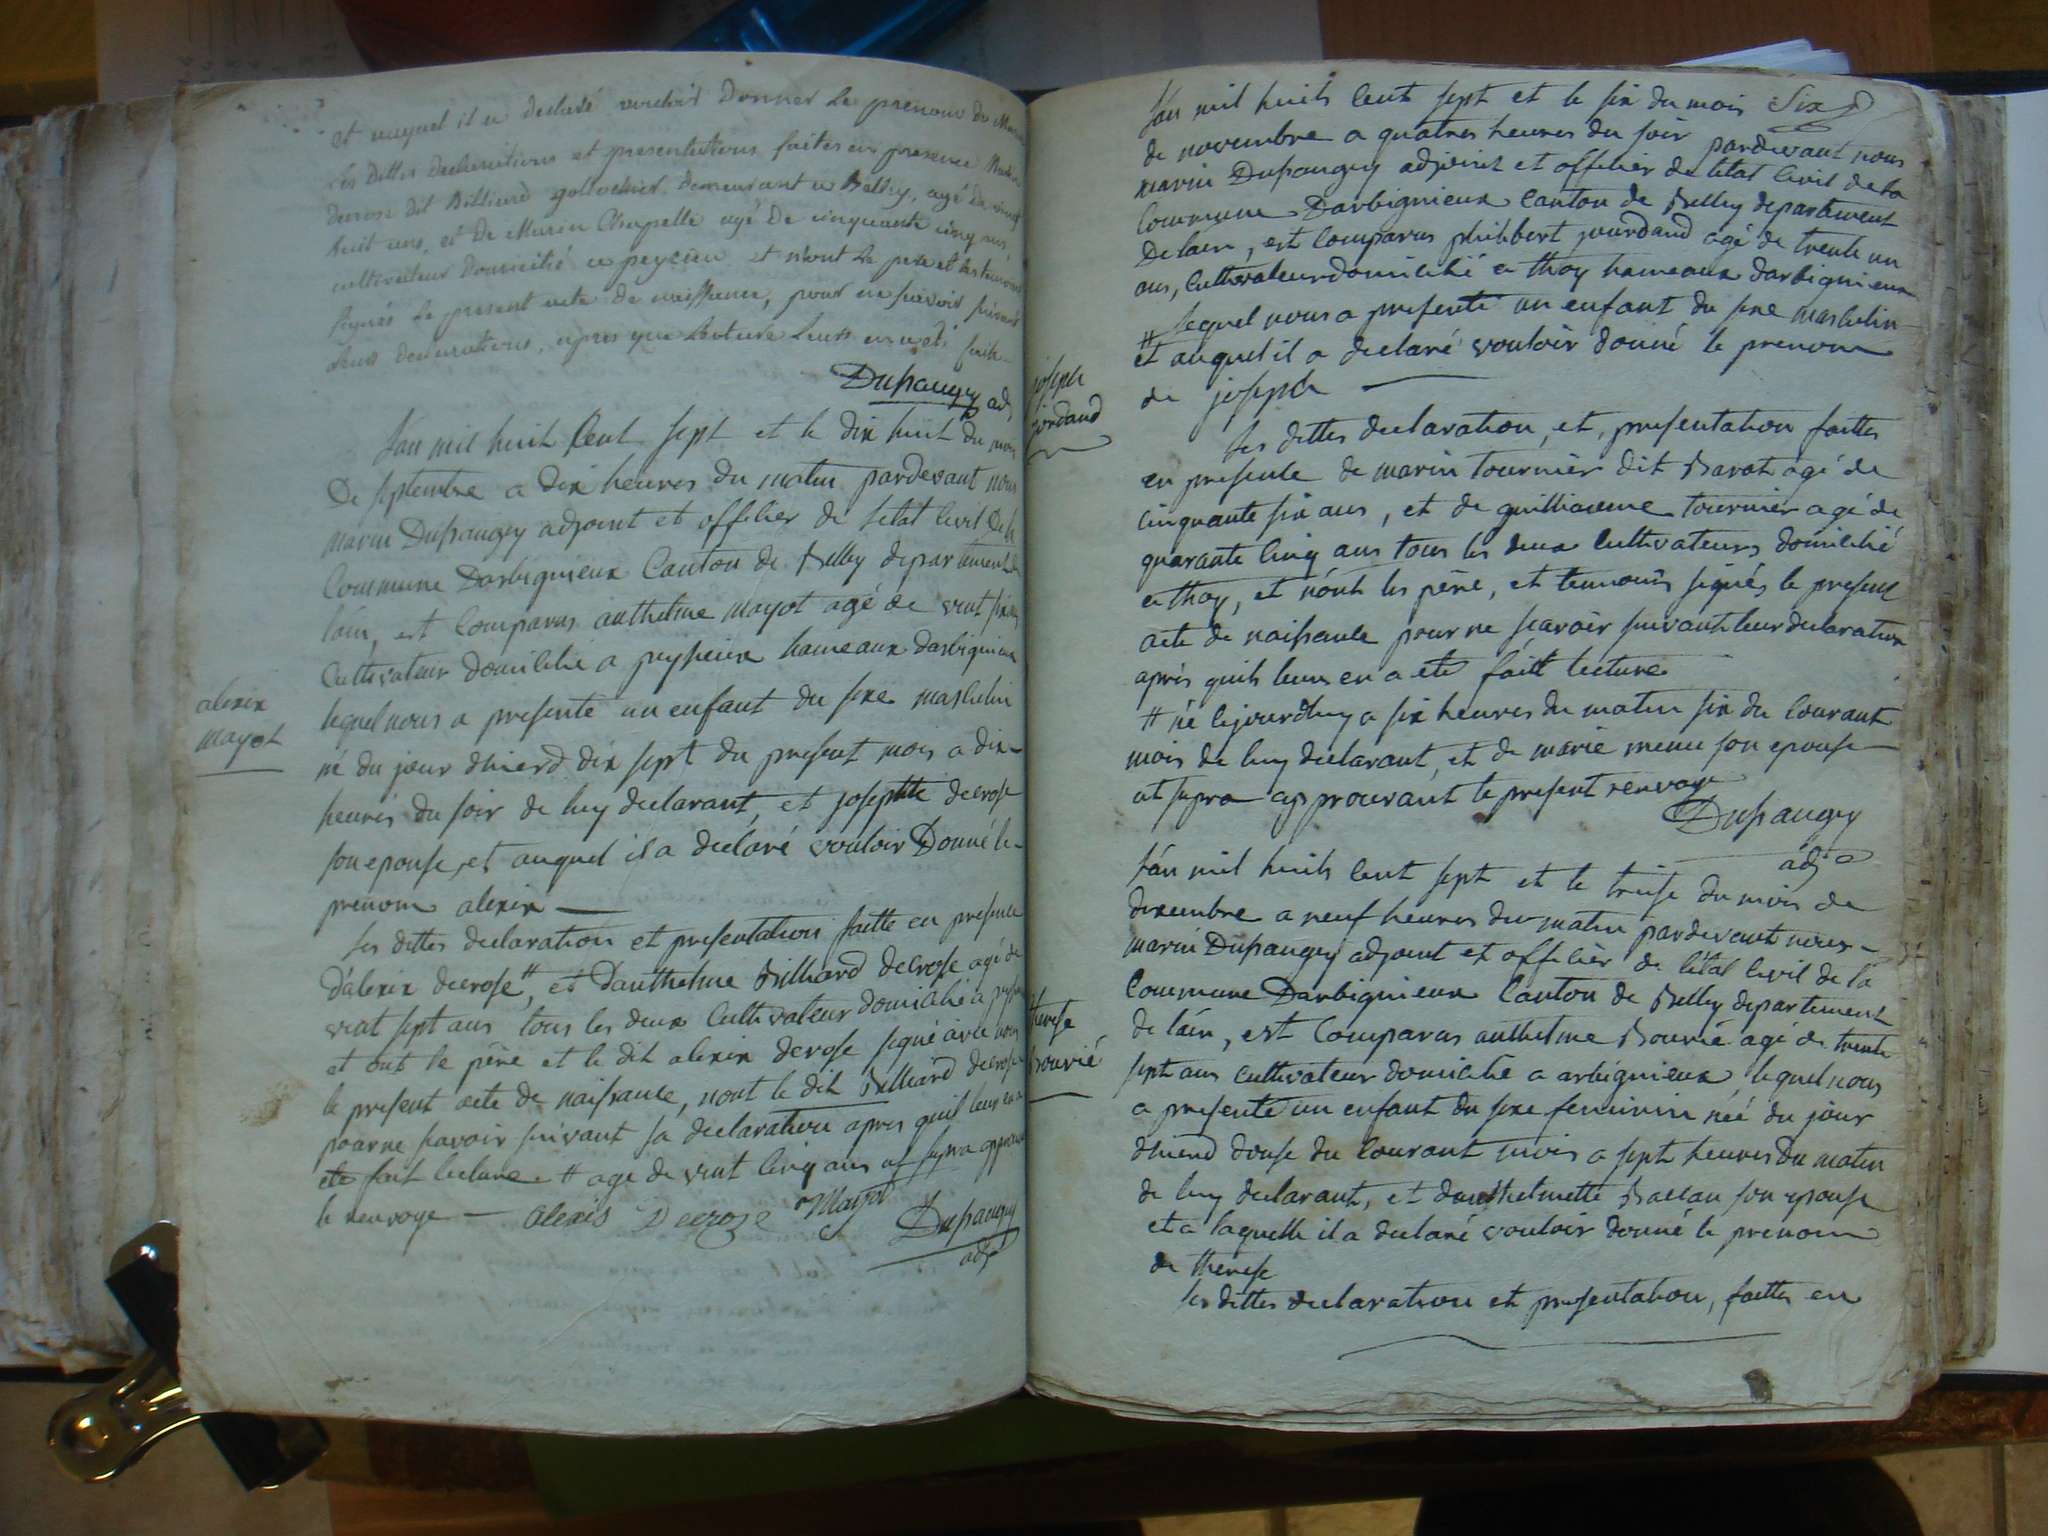 et auquel il a declaré vouloir Donner le prenom de
Les Dittes declarations et presentations faites en presence
decrose dit Billiard demeurant a Belley, agé de vingt
huit ans, et De Marin Chapelle agé De cinquante cinq ans
cultivateur domicilié a peyzieu et n'ont le pere et les temoins
signés le present acte de naissance, pour ne scavoir suivant
leurs declarations, apres que lecture leurs en a eté faite
Dupaugey adj
L'an mil huit Cent sept et le dix huit du mois
De septembre a dix heures du matin pardevant nous
marin Dupaugey adjoint et officier de letat civil De la
Commune Darbignieux Canton de Belley departement de
lain, est comparus anthelme mayot agé de vint six ans
Cultivateur domicilié a peyzieux hameaux darbignieux
alexix
mayot
lequel nous a presenté un enfant du sexe masculin
né du jour dhierd dix sept du present mois a dix
heures du soir de luy declarant, et josephte decrose
son epouse, et auquel il a declaré vouloir Donné le
prenom alexix
les dittes declaration et presentation faitte en presence
d'alexix decrose #, et D'anthelme Billiard decrose agé de
vint sept ans tous les deux Cultivateur domicilié a
et ont le père et le dit alexix decrose signé avec nous
le present acte de naissance, nont le dit Billiard decrose
pour ne scavoir suivant sa declaration apres quil leur en a
eté fait lecture # agé de vint cinq ans ut supra approuvé
le renvoye alexis Decroze Mayot
Dupaugey
adj
L'an mil huits cent sept et le six du mois Six
de novembre a quatres heures du soir pardevant nous
marin Dupaugey adjoint et officier de letat civil de la
Commune Darbignieux Canton de Belley departement
De lain, est comparus philibert jourdand agé de trente un
ans, Cultivateur domicilié a thoy hameaux darbignieux
# lequel nous a presenté un enfant du sexe masculin
et auquel il a declaré vouloir donné le prenom
de joseph
joseph
jordand
les dittes declaration, et, presentation faittes
en presence de marin tournier dit Barat agé de
cinquante six ans, et de guilliaume tournier agé de
quarante cinq ans tous les deux Cultivateurs domicilié
a thoy, et n'ont les père, et temoins signés le present
acte de naissance pour ne scavoir suivant leur declaration
après quils leurs en a eté faitt lecture
# né cejourdhuy a six heures du matin six du courant
mois de luy declarant, et de marie menu son epouse
ut supra approuvant le present renvoy
Dupaugey
adj
L'an mil huits cent sept et le treise du mois de
dexembre a neuf heures du matin pardevant nous
marin Dupaugey adjoint et officièr de l'etat civil de la
Commune Darbignieux Canton de Belley departement
de lain, est comparus anthelme Bourié agé de trente
sept ans cultivateur domicilié a arbignieux lequel nous
therese
Bourié
a presenté un enfant du sexe feminin néé du jour
dhierd douse du courant mois a sept heures du matin
de luy declarant, et danthelmette Ballan son epouse
et a laquelle il a declaré vouloir donné le prenom
de therese
les dittes declaration et presentation, faittes en